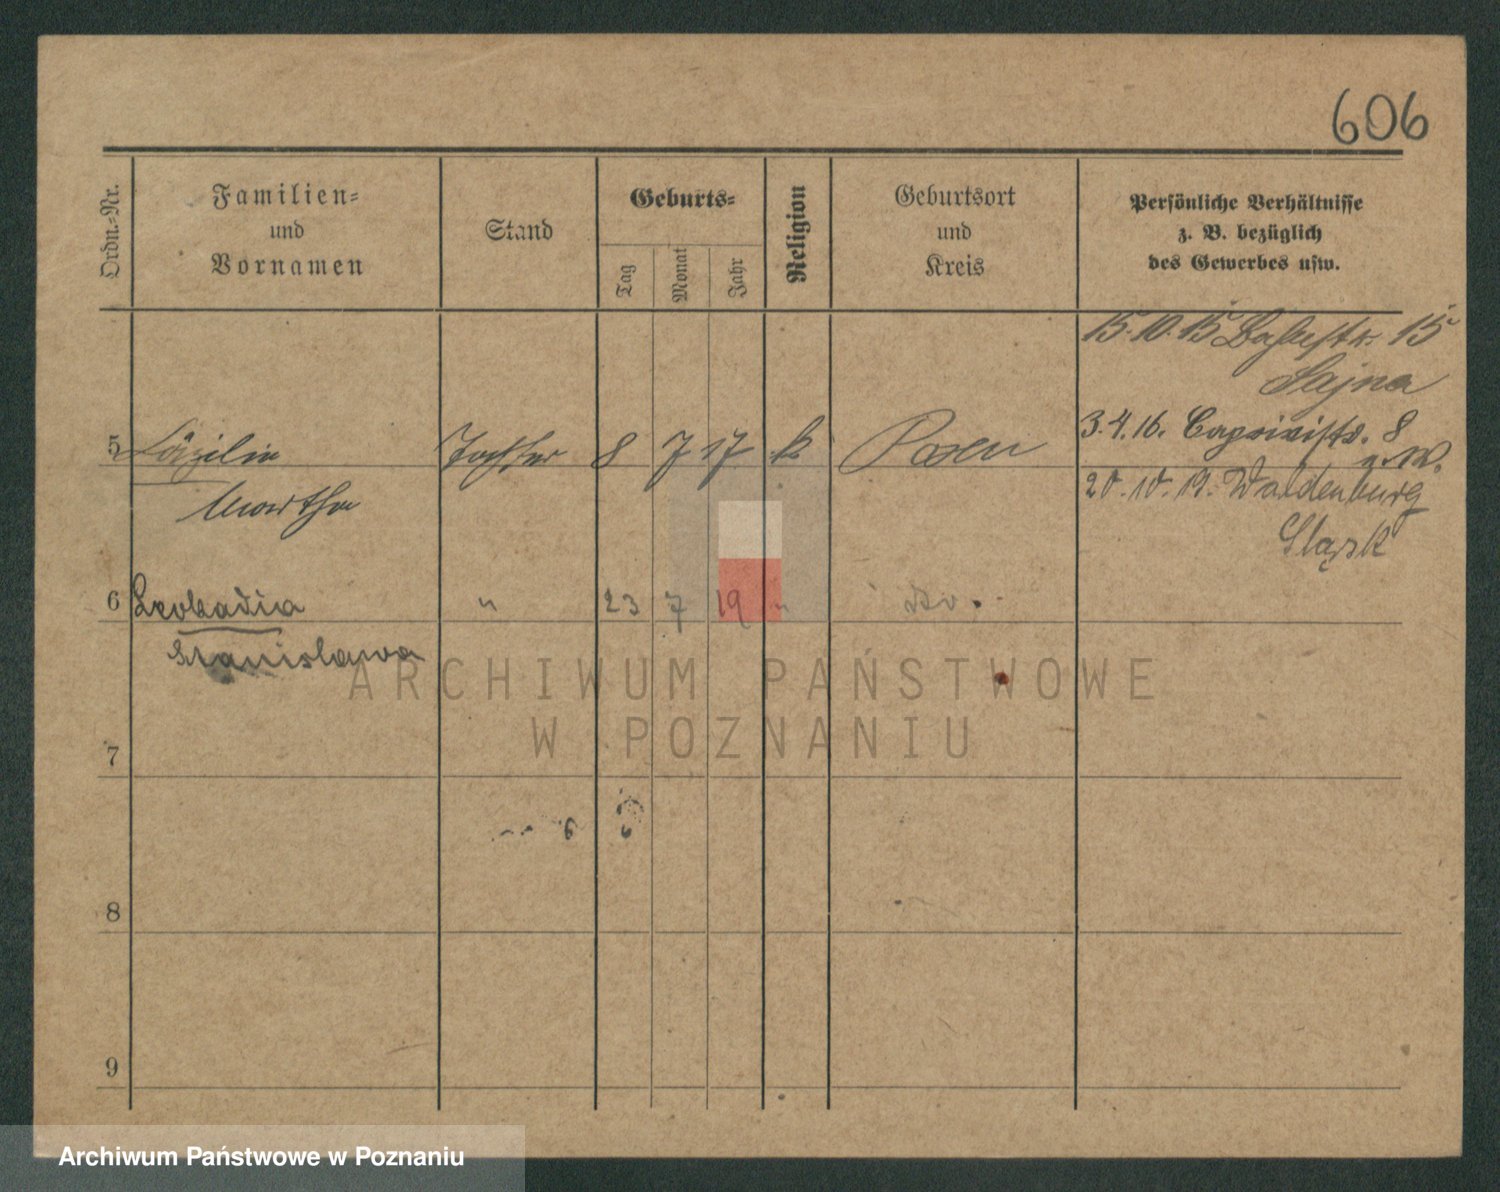 606
Ordn.-Nr.
Familien-
und
Vornamen
Stand
Geburts-
Tag
Monat
Jahr
Religion
Geburtsort
und
Kreis
Persönliche Verhältnisse
z. B. bezüglich
des Gewerbes usw.
15.10.15 15
Sajna
3.4.16. Caprivistr. 8
5 Cäzilie Tochter 8 7 17 k Posen
Martha
20.10.19. Waldenburg
Sląsk
6 Leokadia " 23 7 19 " do.
Stanisława
7
8
9
ARCHIWUM PAŃSTWOWE
W POZNANIU
Archiwum Państwowe w Poznaniu